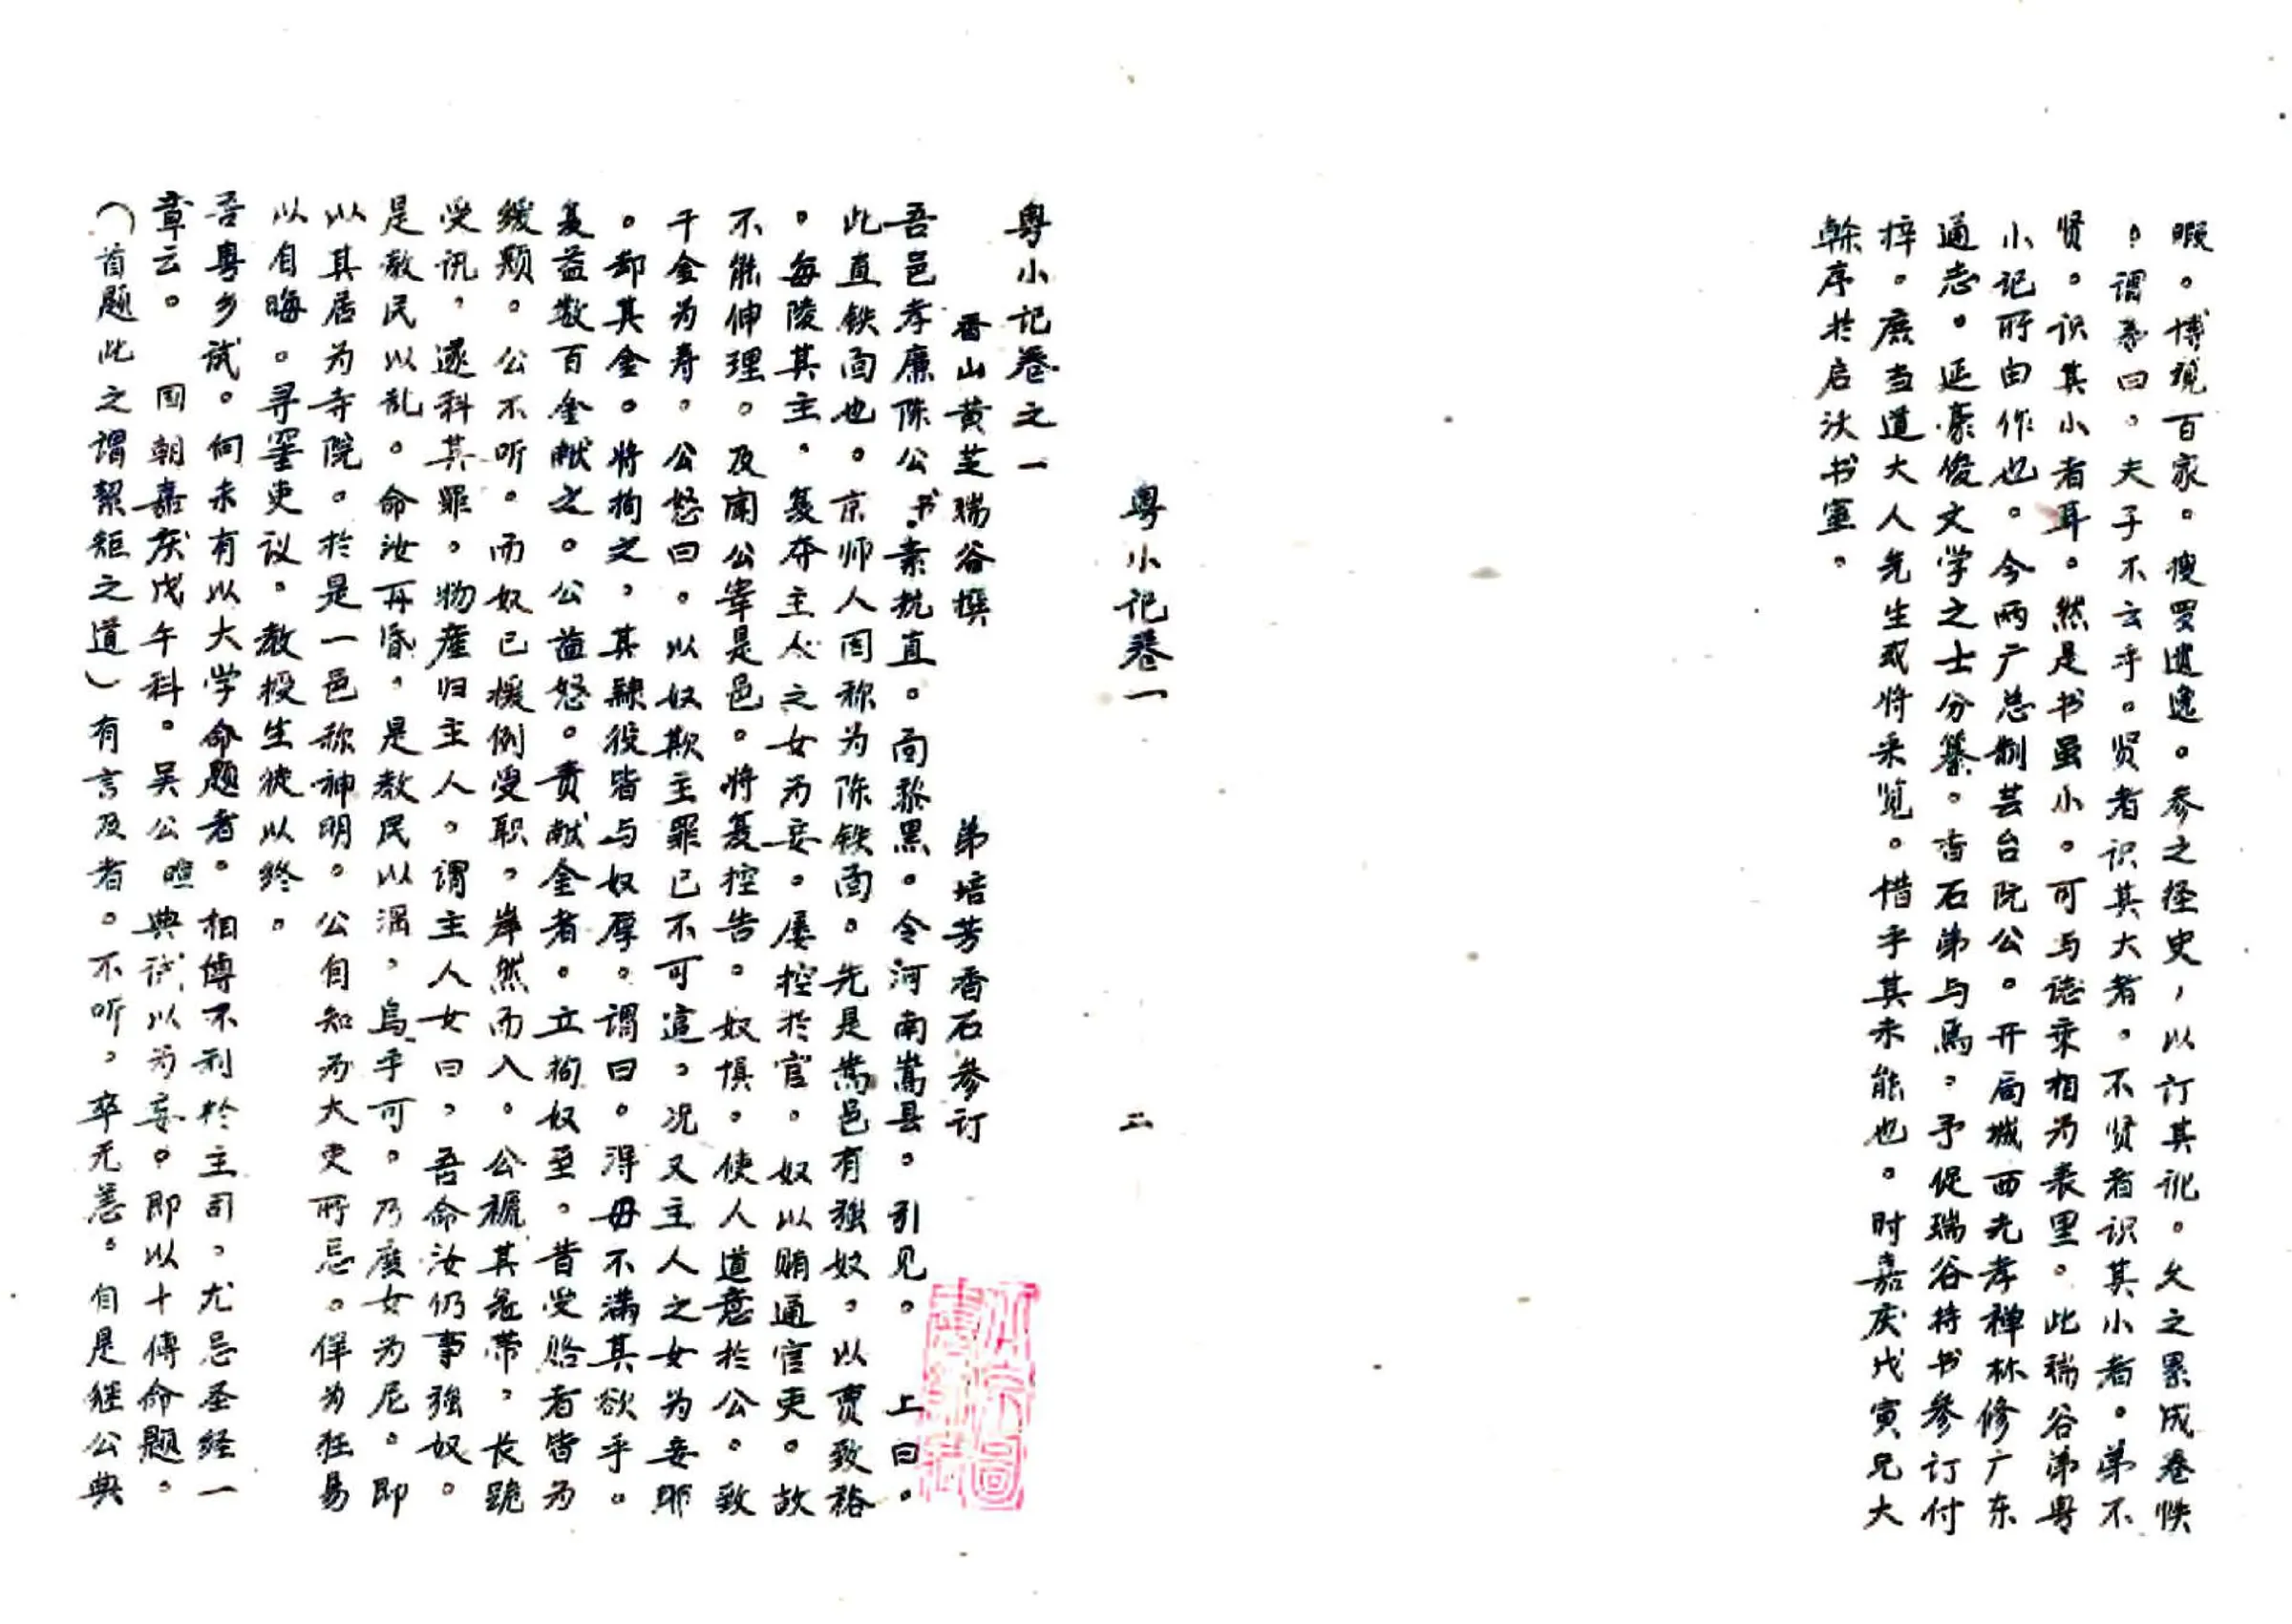 暇。博视百家。搜罗遗逸。参之经史，以订其讹。久之累成卷帙
。谓予曰。夫子不云乎。贤者识其大者。不贤者识其小者。弟不
贤。识其小者耳。然是书虽小。可与志乘相为表里。此瑞谷弟粤
小记所由作也。今两广总制芸台阮公。开局城西光孝禅林修广东
通志。延豪俊文学之士分纂。香石弟与焉。予促瑞谷持书参订付
梓。庶当道大人先生或将采览。惜乎其未能也。时嘉庆戊寅兄大
榦序于启汰书室。
粤小记卷一
二
粤小记卷之一
香山黄芝瑞谷撰 弟培芳香石参订
吾邑孝廉陈公书。素抗直。面黎黑。令河南嵩县。引见。上曰。
此直铁面也。京师人因称为陈铁面。先是嵩邑有强奴。以贾致裕
。每陵其主。复夺主人之女为妾。屡控于官。奴以贿通官吏。故
不能伸理。及闻公宰是邑。将复控告。奴惧。使人道意于公。致
千金为寿。公怒曰。以奴欺主罪已不可逭。况又主人之女为妾耶
。却其金。将拘之，其隶役皆与奴厚。谓曰。得毋不满其欲乎。
复益数百金献之。公益怒。责献金者。立拘奴至。昔受贻者皆为
缓颊。公不听。而奴已援例受职。岸然而入。公褫其冠带，长跪
受讯，遂科其罪。物产归主人。谓主人女曰，吾命汝仍事强奴。
是教民以乱。命汝再昏，是教民以淫，乌乎可。乃度女为尼。即
以其居为寺院。于是一邑称神明。公自知为大吏所忌。佯为狂易
以自晦。寻罣吏议。教授生徒以终。
吾粤乡试。向未有以大学命题者。相传不利于主司，尤忌圣经一
章云。国朝嘉庆戊午科。吴公𤊟典试以为妄。即以十传命题。
（首题此之谓絜矩之道）有言及者。不听，卒无恙。自是继公典